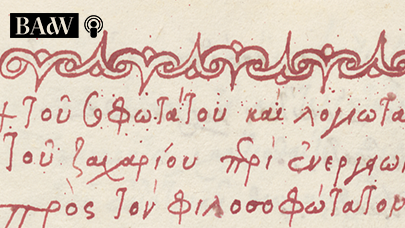 BAdW
+ Τοῦ σοφωτάτου καὶ λογιωτα
Τοῦ ζαχαρίου πρὶ ἐνεργειῶ
πρὸς τὸν φιλοσοφώτατον